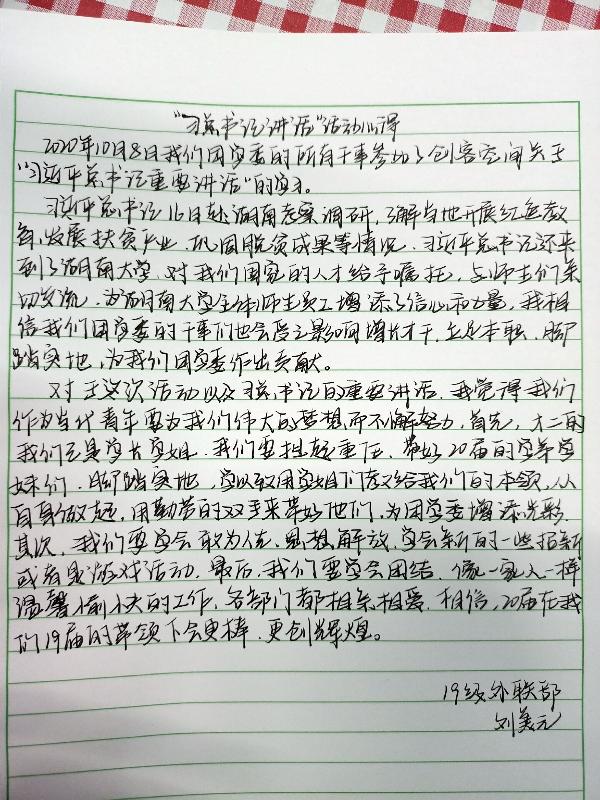 “习总书记讲话”活动心得
2020年10月8日我们团学委的所有干事参加了创客空间关于
“习近平总书记重要讲话”的学习。
习近平总书记16日赴湖南考察调研，了解当地开展红色教
育，发展扶贫产业，巩固脱贫成果等情况，习近平总书记还来
到了湖南大学，对我们国家的人才给予嘱托，与师生们亲
切交流，为湖南大学全体师生员工增添了信心和力量，我相
信我们团学委的干事们也会受之影响增长才干，立足本职，脚
踏实地，为我们团学委作出贡献。
对于这次活动以及习总书记的重要讲话，我觉得我们
作为当代青年要为我们伟大的梦想而不懈努力，首先，大二的
我们已是学长学姐，我们要担起重任，带好20届的学弟学
妹们，脚踏实地，学以致用学姐们教给我们的本领，从
自身做起，用勤劳的双手来带好他们，为团学委增添光彩。
其次，我们要学会敢为人先，思想解放，学会新的一些招新
或者是游戏活动。最后，我们要学会团结，像一家人一样
温馨愉快的工作，各部门都相亲相爱，相信，20届在我
们19届的带领下会更棒，更创辉煌。
19级外联部
刘美元